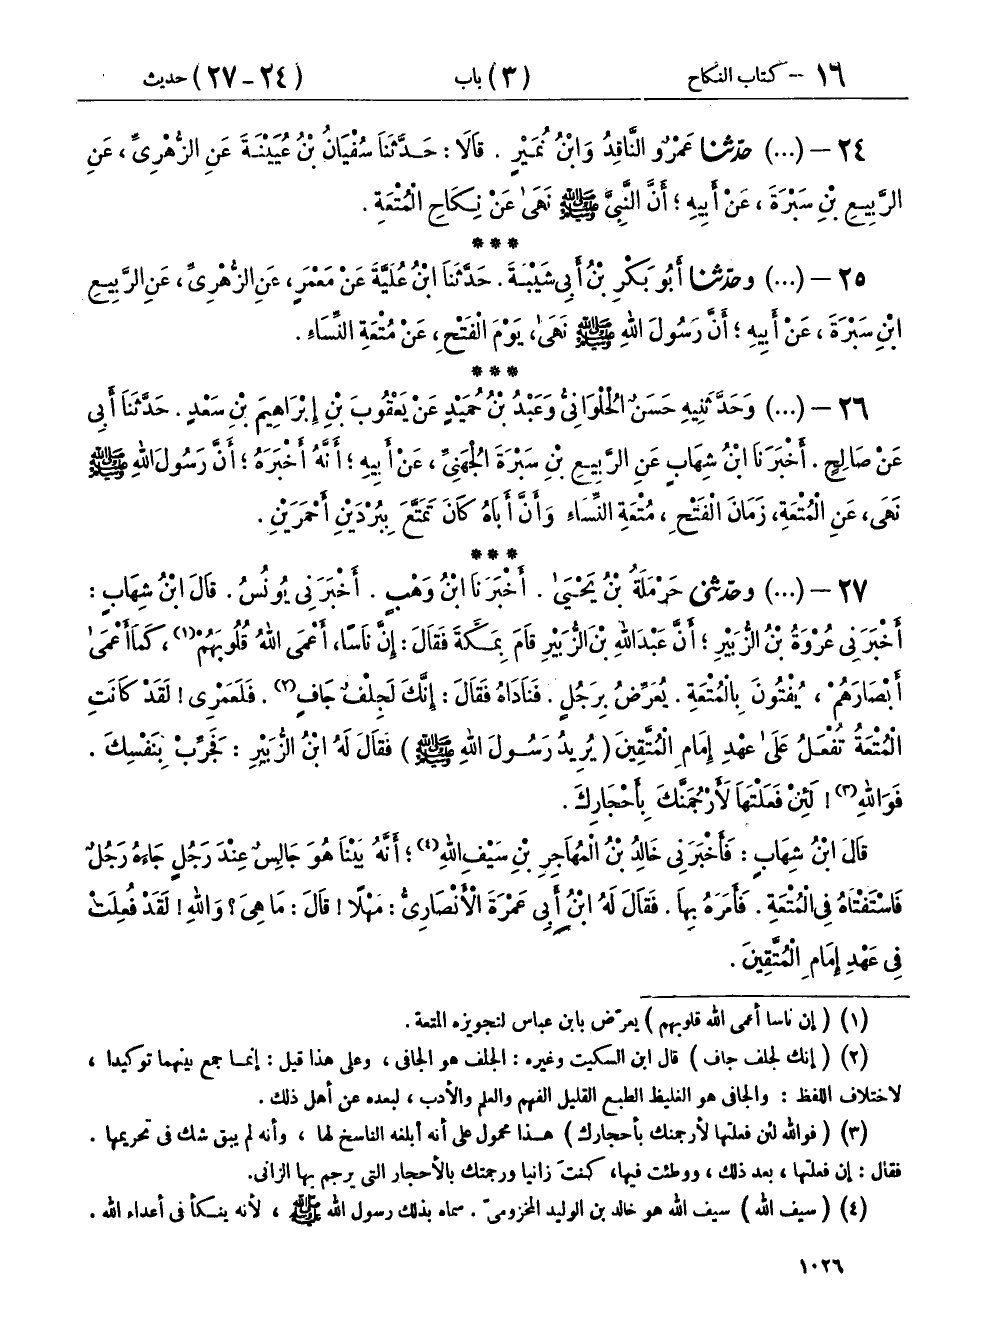 ١٦ -- كتاب النكاح (٣) باب (٢٤ - ٢٧) حديث
٢٤ - (...) حدّثنا عَمْرٌو النَّاقِدُ وَابْنُ نُمَيْرٍ . قَالَا : حَدَّثَنَا سُفْيَانُ بْنُ عُيَيْنَةَ عَنِ الزُّهْرِيِّ ، عَنِ
الرَّبِيعِ بْنِ سَبْرَةَ ، عَنْ أَبِيهِ ؛ أَنَّ النَّبِيَّ ﷺ نَهَىٰ عَنْ نِكَاحِ الْمُتْعَةِ .
* * *
٢٥ - (...) وحدّثنا أَبُو بَكْرِ بْنُ أَبِي شَيْبَةَ . حَدَّثَنَا ابْنُ عُلَيَّةَ عَنْ مَعْمَرٍ ، عَنِ الزُّهْرِيِّ ، عَنِ الرَّبِيعِ
ابْنِ سَبْرَةَ ، عَنْ أَبِيهِ ؛ أَنَّ رَسُولَ اللهِ ﷺ نَهَىٰ ، يَوْمَ الْفَتْحِ ، عَنْ مُتْعَةِ النِّسَاءِ .
* * *
٢٦ - (...) وَحَدَّثَنِيهِ حَسَنٌ الْحُلْوَانِيُّ وَعَبْدُ بْنُ حُمَيْدٍ عَنْ يَعْقُوبَ بْنِ إِبْرَاهِيمَ بْنِ سَعْدٍ . حَدَّثَنَا أَبِي
عَنْ صَالِحٍ . أَخْبَرَنَا ابْنُ شِهَابٍ عَنِ الرَّبِيعِ بْنِ سَبْرَةَ الْجُهَنِيِّ ، عَنْ أَبِيهِ ؛ أَنَّهُ أَخْبَرَهُ ؛ أَنَّ رَسُولَ اللهِ ﷺ
نَهَى ، عَنِ الْمُتْعَةِ ، زَمَانَ الْفَتْحِ ، مُتْعَةِ النِّسَاءِ وَأَنَّ أَبَاهُ كَانَ تَمَتَّعَ بِبُرْدَيْنِ أَحْمَرَيْنِ .
* * *
٢٧ - (...) وحدّثنى حَرْمَلَةُ بْنُ يَحْيَىٰ . أَخْبَرَنَا ابْنُ وَهْبٍ . أَخْبَرَنِي يُونُسُ . قَالَ ابْنُ شِهَابٍ :
أَخْبَرَنِي عُرْوَةُ بْنُ الزُّبَيْرِ ؛ أَنَّ عَبْدَ اللهِ بْنَ الزُّبَيْرِ قَامَ بِمَكَّةَ فَقَالَ : إِنَّ نَاسًا ، أَعْمَى اللهُ قُلُوبَهُمْ(١) ، كَمَا أَعْمَىٰ
أَبْصَارَهُمْ ، يُفْتُونَ بِالْمُتْعَةِ . يُعَرِّضُ بِرَجُلٍ . فَنَادَاهُ فَقَالَ : إِنَّكَ لَجِلْفٌ جَافٍ(٢) . فَلَعَمْرِى ! لَقَدْ كَانَتِ
الْمُتْعَةُ تُفْعَلُ عَلَىٰ عَهْدِ إِمَامِ الْمُتَّقِينَ ( يُرِيدُ رَسُولَ اللهِ ﷺ ) فَقَالَ لَهُ ابْنُ الزُّبَيْرِ : فَجَرِّبْ بِنَفْسِكَ .
فَوَاللهِ(٣) ! لَئِنْ فَعَلْتَهَا لَأَرْجُمَنَّكَ بِأَحْجَارِكَ .
قَالَ ابْنُ شِهَابٍ : فَأَخْبَرَنِي خَالِدُ بْنُ الْمُهَاجِرِ بْنِ سَيْفِ اللهِ(٤) ؛ أَنَّهُ بَيْنَا هُوَ جَالِسٌ عِنْدَ رَجُلٍ جَاءَهُ رَجُلٌ
فَاسْتَفْتَاهُ فِي الْمُتْعَةِ . فَأَمَرَهُ بِهَا . فَقَالَ لَهُ ابْنُ أَبِي عَمْرَةَ الْأَنْصَارِيُّ : مَهْلًا ! قَالَ : مَا هِيَ ؟ وَاللهِ ! لَقَدْ فُعِلَتْ
فِي عَهْدِ إِمَامِ الْمُتَّقِينَ .
(١) ( إن ناسا أعمى الله قلوبهم ) يعرّض بابن عباس لتجويزه المتعة .
(٢) ( إنك لجلف جاف ) قال ابن السكيت وغيره : الجلف هو الجافى ، وعلى هذا قيل : إنما جمع بينهما توكيدا ،
لاختلاف اللفظ : والجافى هو الغليظ الطبع القليل الفهم والعلم والأدب ، لبعده عن أهل ذلك .
(٣) ( فوالله لئن فعلتها لأرجمنك بأحجارك ) هذا محمول على أنه أبلغه الناسخ لها ، وأنه لم يبق شك فى تحريمها .
فقال : إن فعلتها ، بعد ذلك ، ووطئت فيها، كنت زانيا ورجمتك بالأحجار التى يرجم بها الزانى.
(٤) ( سيف الله ) سيف الله هو خالد بن الوليد المخزومىّ . سماه بذلك رسول الله ﷺ ، لأنه ينكأ فى أعداء الله .
١٠٢٦